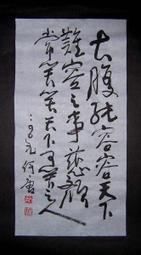 大腹能容容天下
難容之事慈顏
常笑笑天下可笑之人